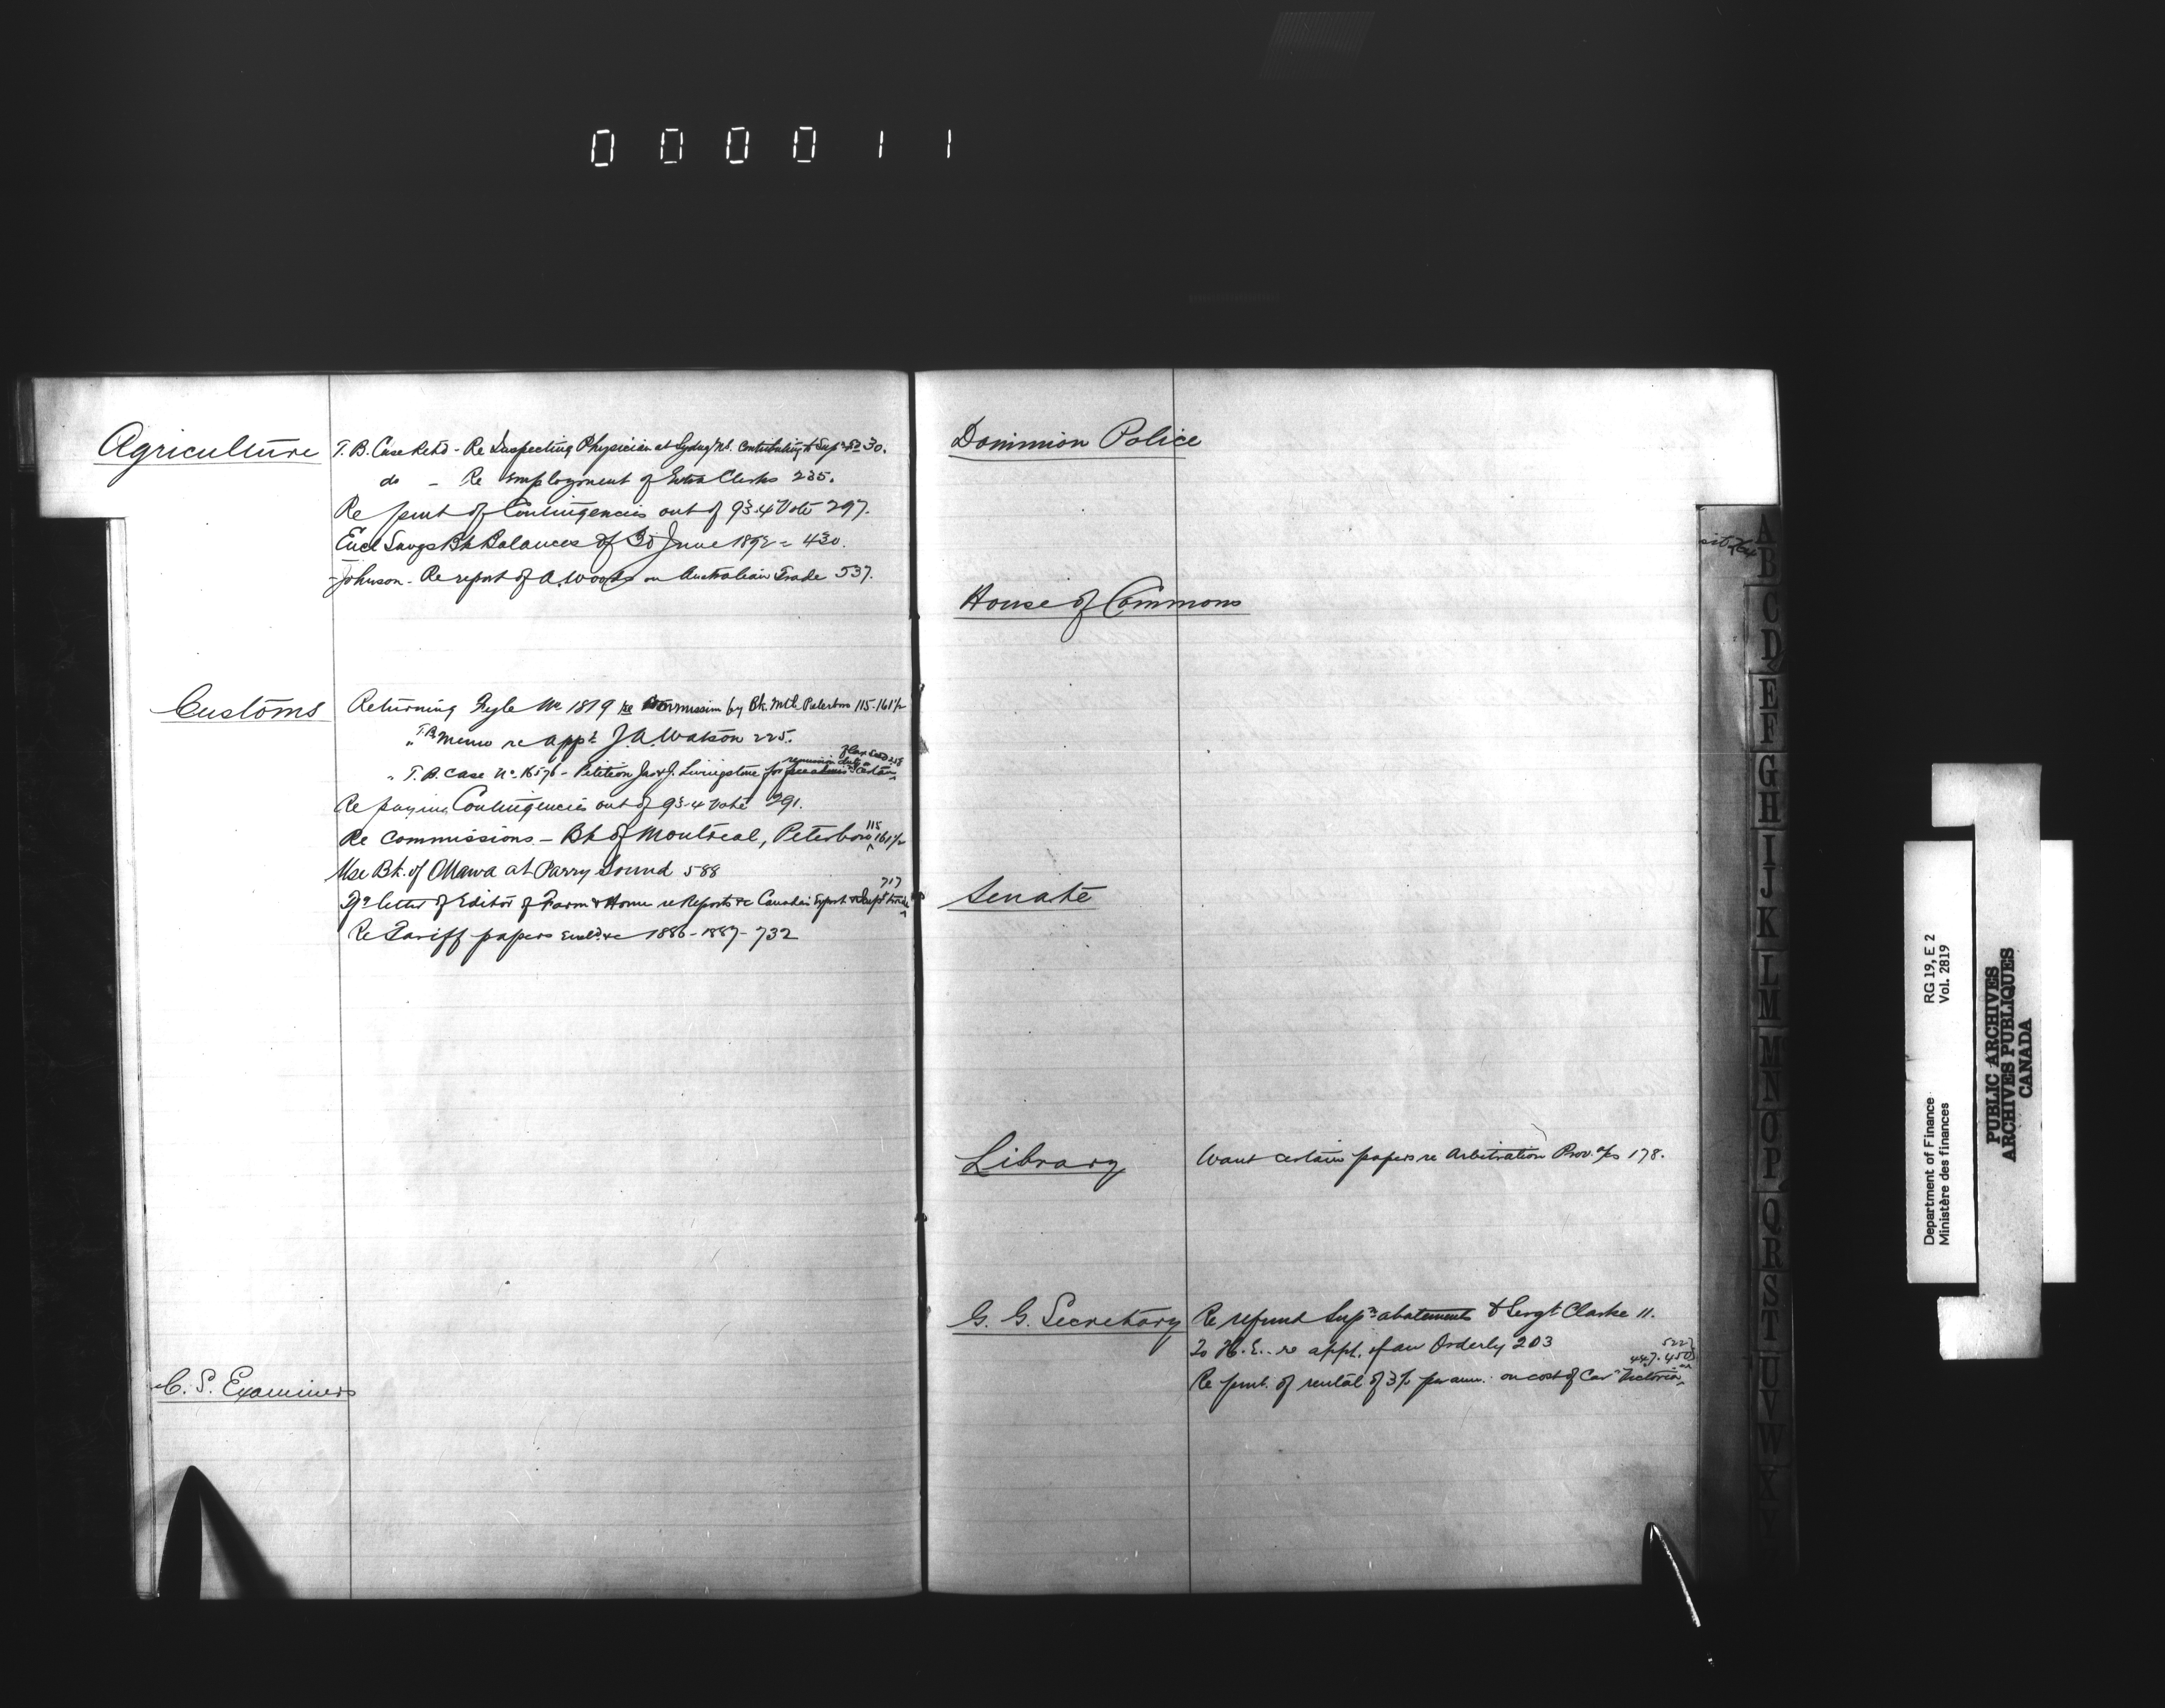 000011
Agriculture
T. B. Case Retd - Re Inspecting Physician at Sydney N.S. Contributing to Supn 30.
do - Re employment of Extra Clerks 235.
Re pmt of Contingencies out of 93-4 Vote 297.
Encl Savgs Bk Balances of 30 June 1892 = 430.
Johnson - Re report of A. Woods on Australian Trade 537.
Customs
Returning Fyle No 1819 re Commission by Bk. Mtl Peterboro 115-161½
" T.B. Memo re appt J. A. Watson 225.
" T. B. Case No. 16576 - Petition Jas & J. Livingstone for remission duty on Flax Seed 258
Re paying Contingencies out of 93-4 Vote 291.
Re Commissions - Bk of Montreal, Peterboro 115 161½
Use Bk. of Ottawa at Parry Sound 588
letter of Editor of Farm & Home re Reports &c Canadian Export & Impt trade 717
Re Tariff papers &c 1886-1887-732
C. S. Examiners
Dominion Police
House of Commons
Senate
Library
Want certain papers re Arbitration Prov. a/cs 178.
G. G. Secretary
Re refund Supn abatements Sergt Clarke 11.
To H. E. re appt. of an Orderly 203
Re pmt. of rental of 3% per ann. on cost of Car "Victoria" 447. 450 522
A
B
C
D
E
F
G
H
I
J
K
L
M
N
O
P
Q
R
S
T
U
V
W
Department of Finance RG 19, E 2
Ministère des finances Vol. 2819
PUBLIC ARCHIVES
ARCHIVES PUBLIQUES
CANADA